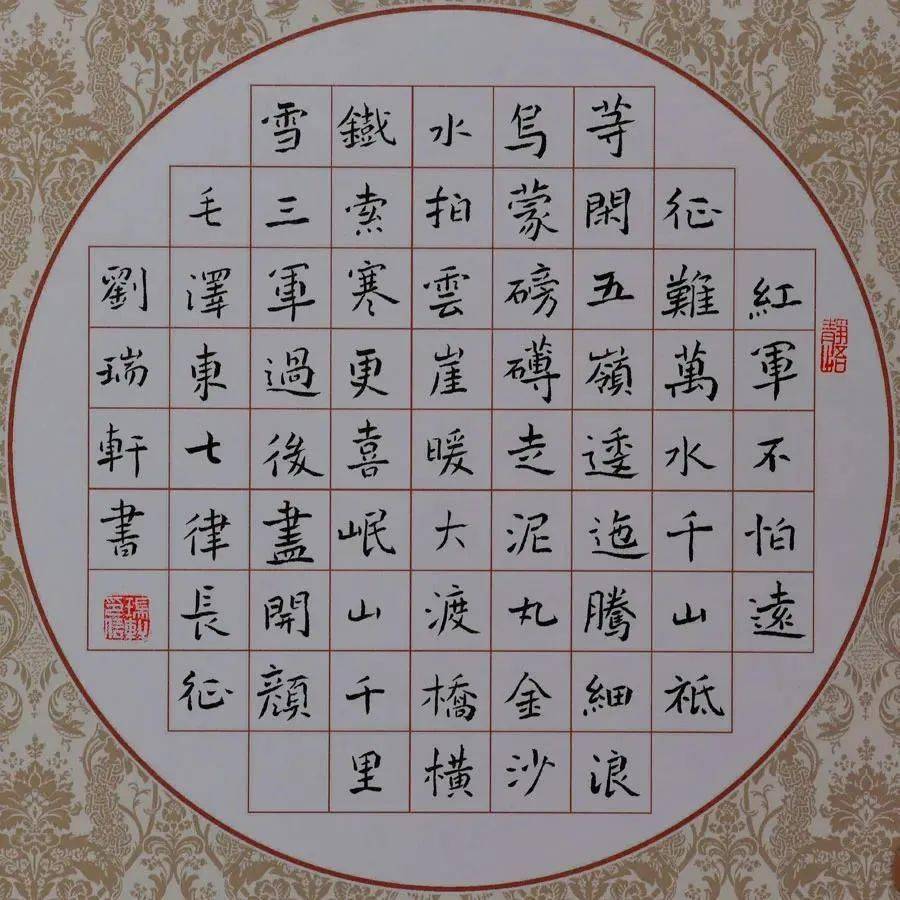 紅軍不怕遠
征難萬水千山祗
等閑五嶺逶迤騰細浪
烏蒙磅礴走泥丸金沙
水拍雲崖暖大渡橋橫
鐵索寒更喜岷山千里
雪三軍過後盡開顏
毛澤東七律長征
劉瑞軒書